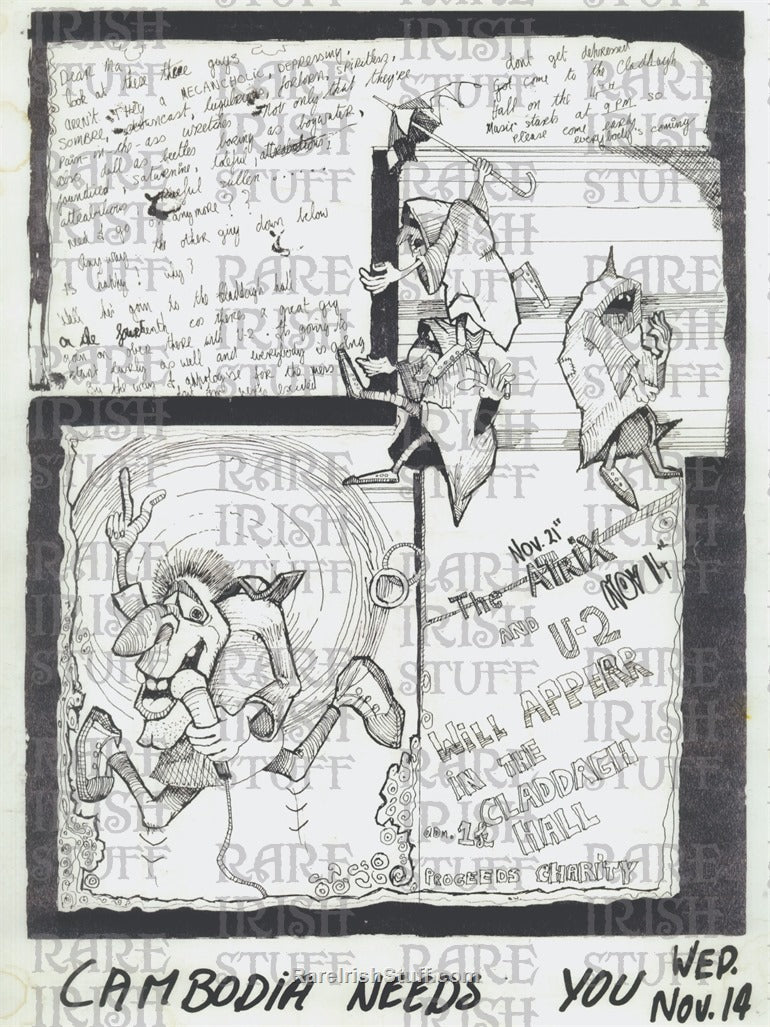 Dear Ma
look at these three guys
aren't they a MELANCHOLIC, DEPRESSING,
SOMBRE, downcast, forlorn, spiritless,
pain-in-the-ass wretches Not only that they're
are dull as beetles boring as bogwater
saturnine,
sullen
need I go on anymore? ?
Any way the other guy down below
is why?
Well he's goin to the Claddagh hall
on the cos theres a great gig
goin on over there with U-2. It's going to
start early as well and everybody is going
By the way I apologise for the mess
don't get depressed
come to the Claddagh
hall on the 14th
Music starts at 9 P.M. so
please come early
everybody's coming
Nov. 21st
The AtRiX
NOV 14th
AND U-2
WILL APPEAR
IN THE
CLADDAGH
HALL
adm. 1£
PROCEEDS CHARITY
CAMBODIA NEEDS YOU WED.
NOV. 14
RareIrishStuff.com
RARE IRISH STUFF